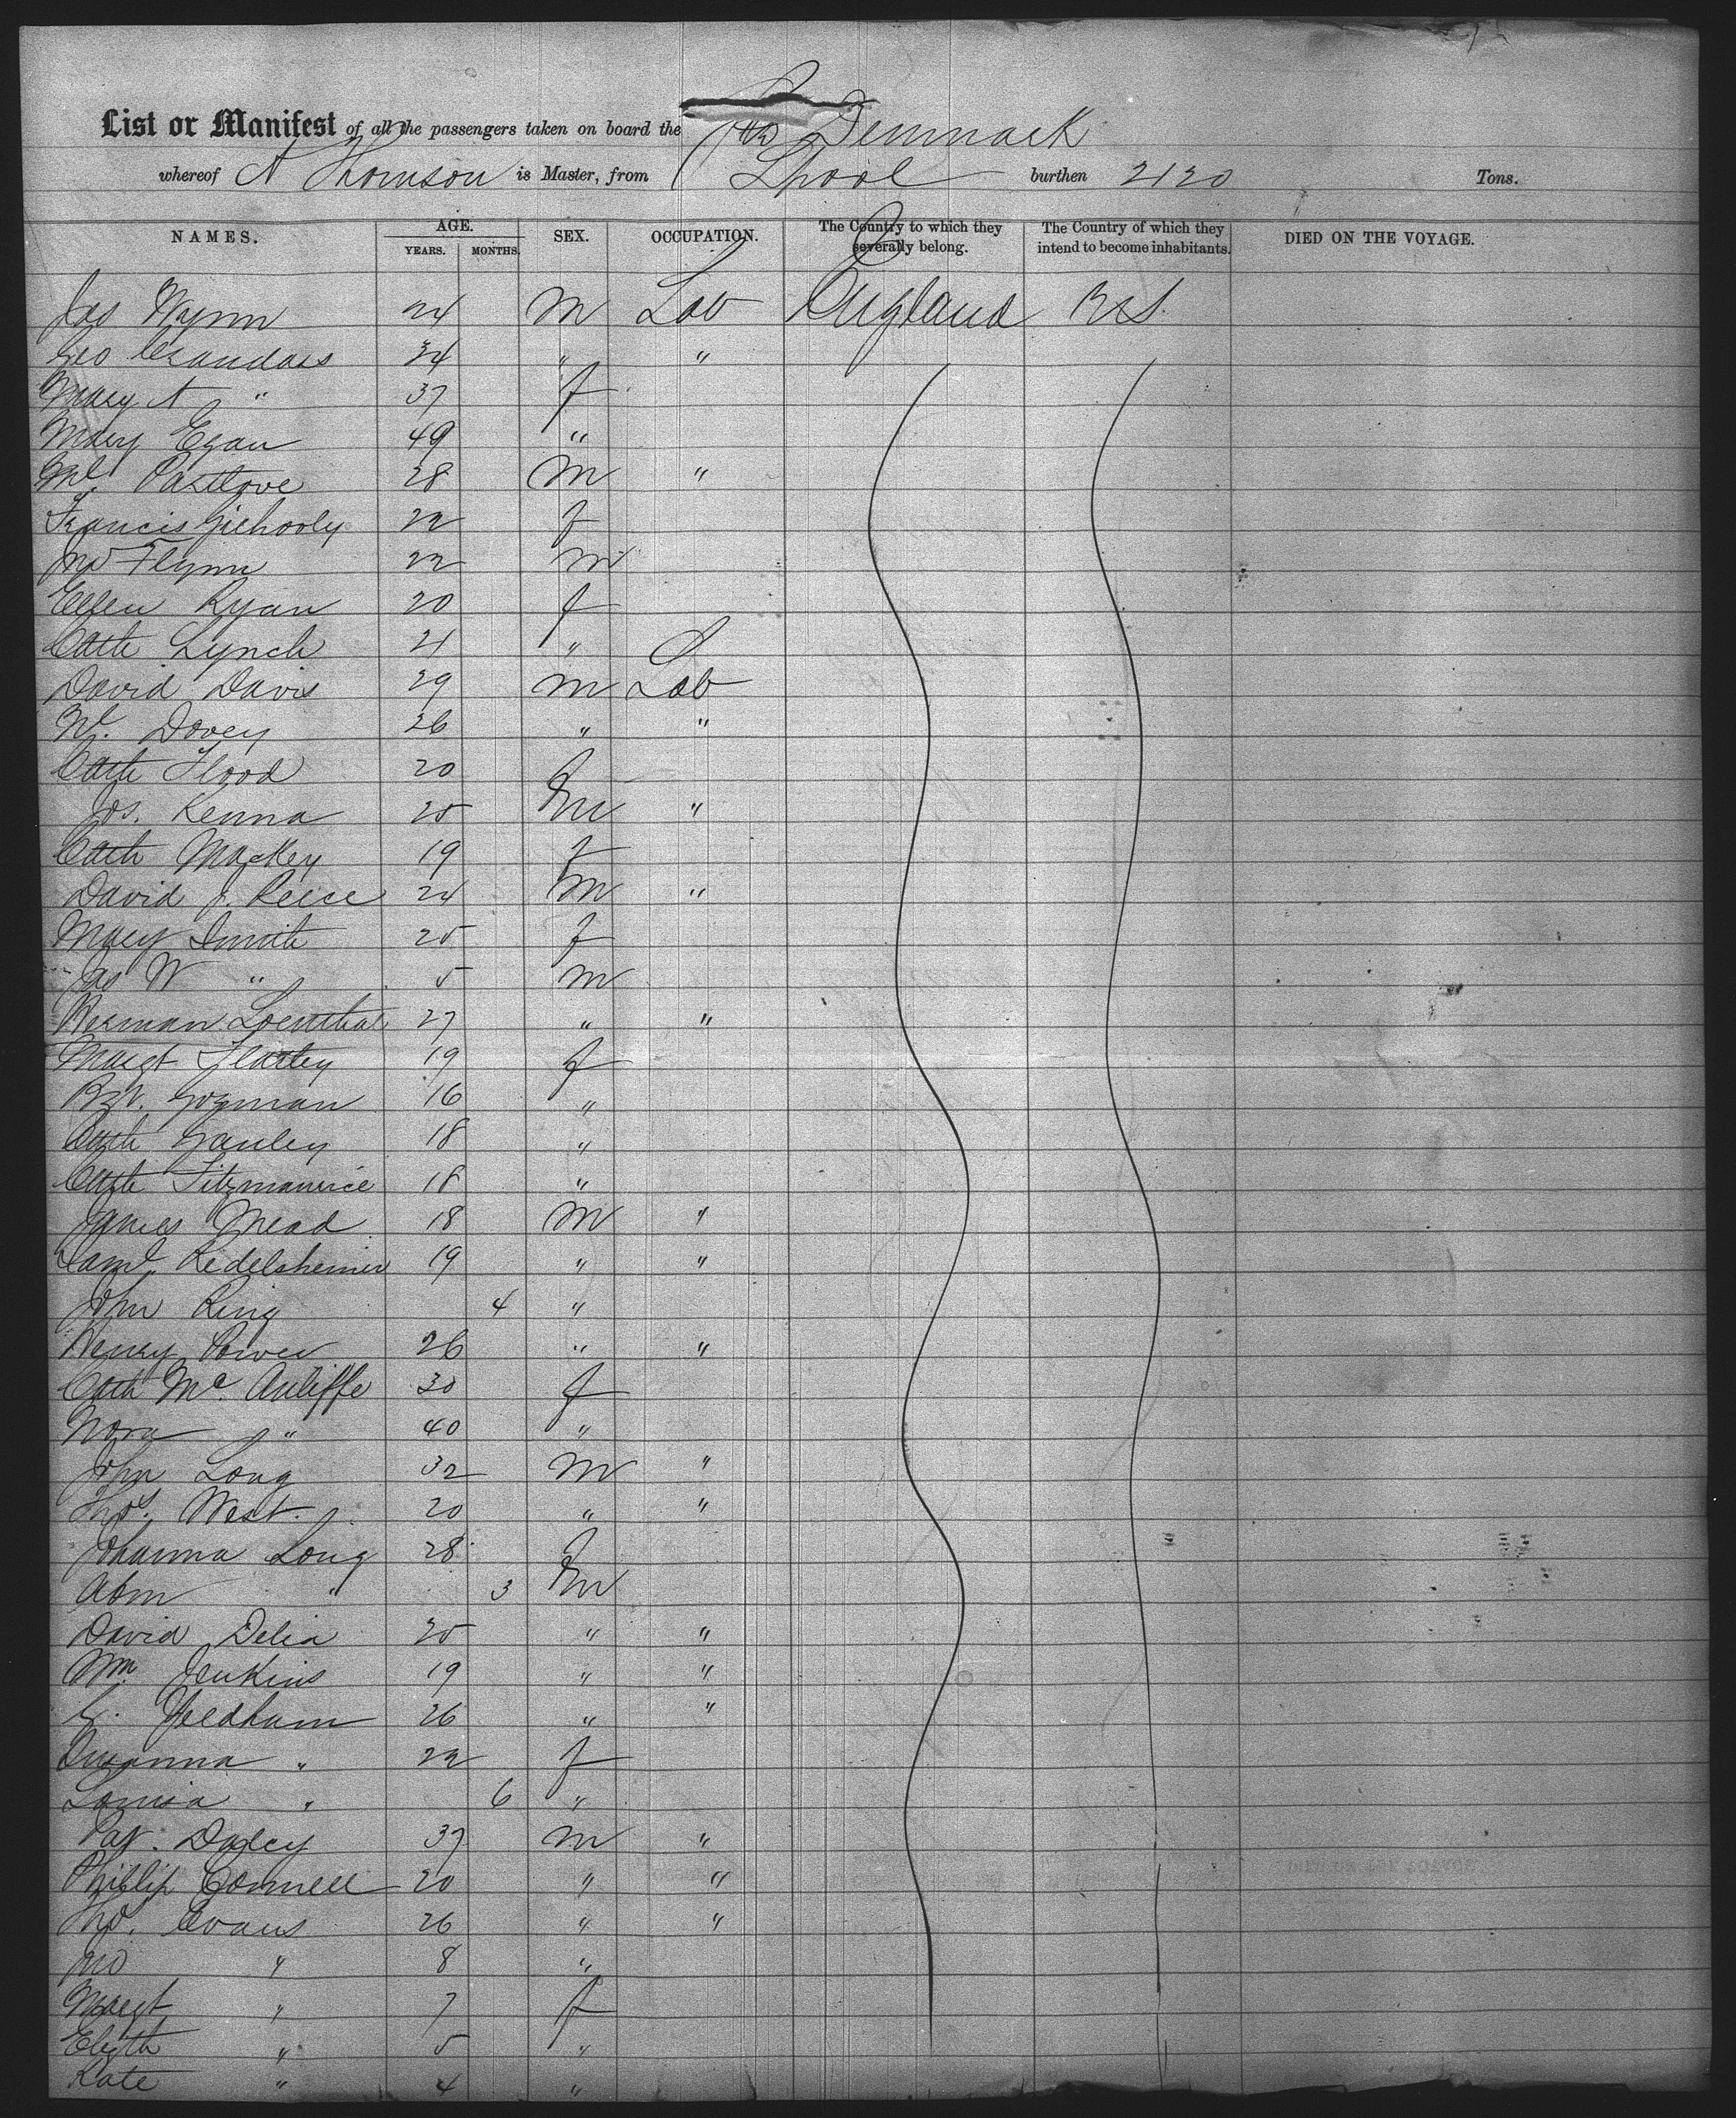 List or Manifest of all the passengers taken on board the SS Denmark
whereof A Thomson is Master, from Lpool burthen 2120 Tons.
NAMES. AGE. YEARS. MONTHS. SEX. OCCUPATION. The Country to which they severally belong. The Country of which they intend to become inhabitants. DIED ON THE VOYAGE.
Jas Wynn 24 M Lab England
Geo 34 " "
Mary A " 37 f
Mary Egan 49 "
Ml. 28 M "
Francis Gilhooly 22 f
Jno Flynn 22 M
Ellen Ryan 20 f
Cath Lynch 21 "
David Davis 29 M Lab
Dovey 26 " "
Cath Flood 20 f
Jos. Kenna 25 M "
Cath Mackey 19 f
David J. Reece 24 M "
Mary Smith 25 f
Jas W " 5 M
Herman Loenthal 27 " "
Margt 19 f
Gozman 16 "
Cath Ganley 18 "
Cath Fitzmaurice 18 "
James Mead 18 M "
Saml. Redelsheimer 19 " "
John Ring 4 "
Henry Power 26 " "
Cath Mc. Auliffe 30 f
Nora " 40 "
John Long 32 M "
Thos. West. 20 " "
Johanna Long 28 f
Abm " 3 M
David Delia 25 " "
Wm. Jenkins 19 " "
Yieldham 26 " "
Susanna " 22 f
Louisa " 6 "
Pat. Dadey 37 M "
Phillip Connell 20 " "
Tho. Evans 26 " "
Jno " 8 "
Margt " 7 f
Elizth " 5 "
Kate " 4 "